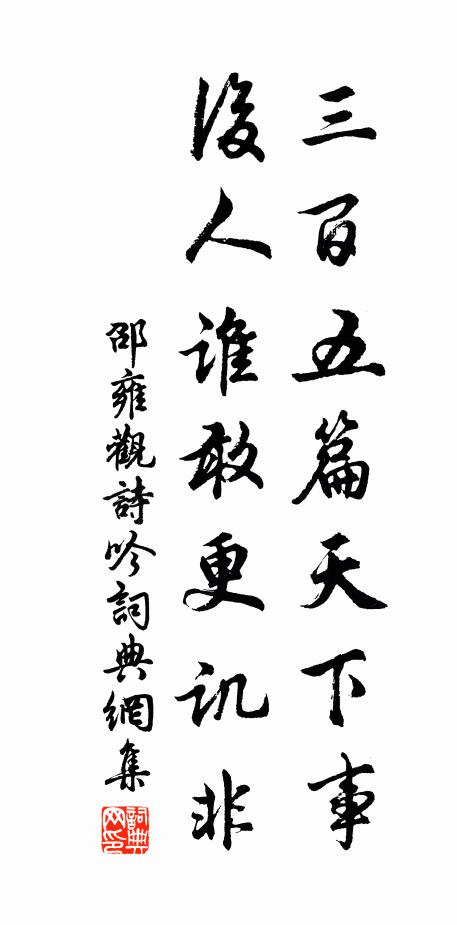 三百五篇天下事
後人誰敢更讥非
邵雍觀詩吟詞典網集
詞典
网印